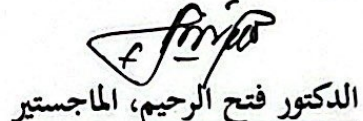 الدكتور فتح الرحيم، الماجستير